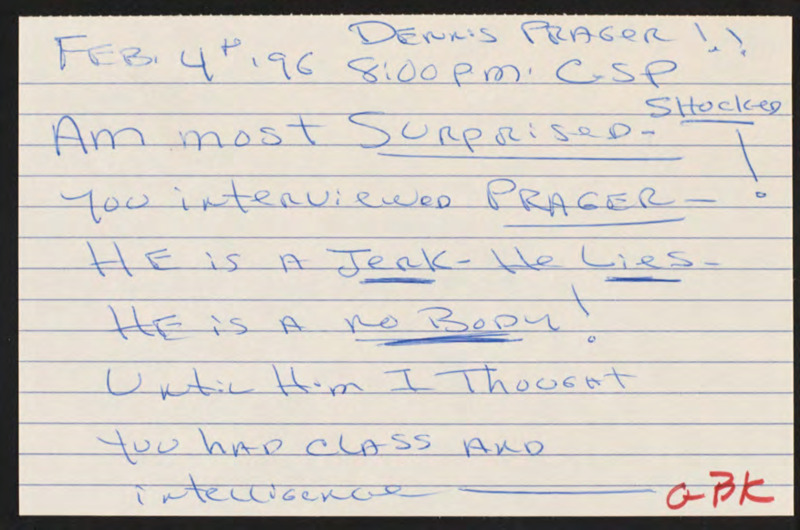 DENNIS PRAGER !!
FEB. 4th, 96 8:00 P.M. CSP
SHOCKED
Am most SURPRISED- !
YOU interviewed PRAGER-
HE iS A Jerk- He Lies-
HE iS A NO BODY!
Until Him I THOUGHT
YOU HAD CLASS AND
intelligence — GBK